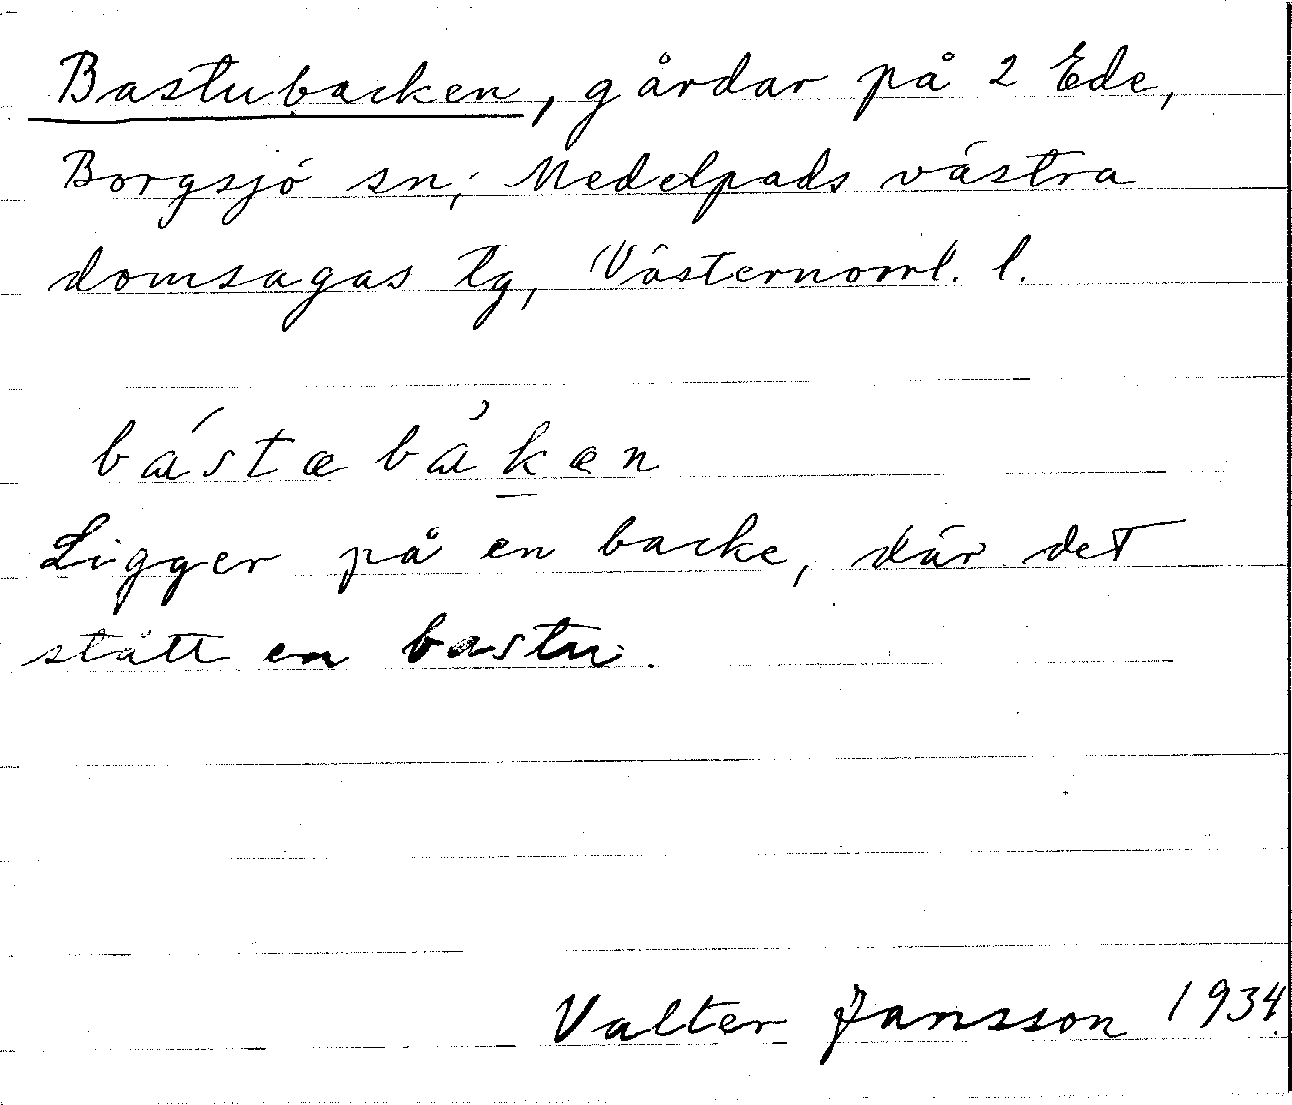 Bastubacken, gårdar på 2 Ede,
Borgsjö sn, Medelpads västra
domsagas tg, Västernorrl. l.
bástæbàkæn
Ligger på en backe, där det
stått en bastu.
Valter Jansson 1934.